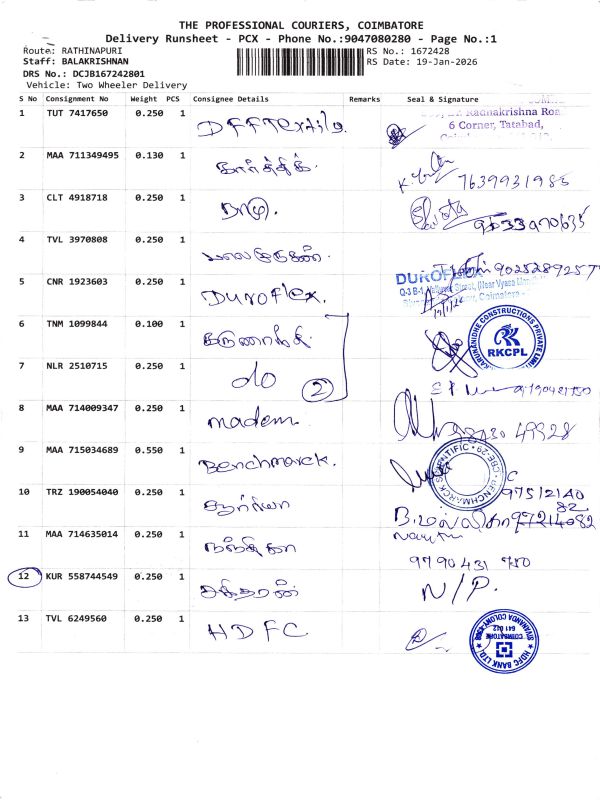 THE PROFESSIONAL COURIERS, COIMBATORE
Delivery Runsheet - PCX - Phone No.:9047080280 - Page No.:1
Route: RATHINAPURI
Staff: BALAKRISHNAN
DRS No.: DCJB167242801
Vehicle: Two Wheeler Delivery
RS No.: 1672428
RS Date: 19-Jan-2026
S No Consignment No Weight PCS Consignee Details Remarks Seal & Signature
1 TUT 7417650 0.250 1
Radhakrishna Road
6 Corner, Tatabad,
2 MAA 711349495 0.130 1 கார்த்திக்.
7639931985
3 CLT 4918718 0.250 1
4 TVL 3970808 0.250 1 பாலமுருகன்.
9025289257
5 CNR 1923603 0.250 1 Duroflex.
DUROFLEX
6 TNM 1099844 0.100 1
KARUNANIDHE CONSTRUCTIONS PRIVATE LIMITED
RKCPL
7 NLR 2510715 0.250 1 do 2
8 MAA 714009347 0.250 1 madem.
9 MAA 715034689 0.550 1 Benchmarck.
BENCHMARCK SCIENTIFIC
10 TRZ 190054040 0.250 1
97512140
82
97214082
11 MAA 714635014 0.250 1
9790431750
12 KUR 558744549 0.250 1
N/P.
13 TVL 6249560 0.250 1 HDFC
HDFC BANK LTD.
SIVANANDA COLONY
COIMBATORE
641 012